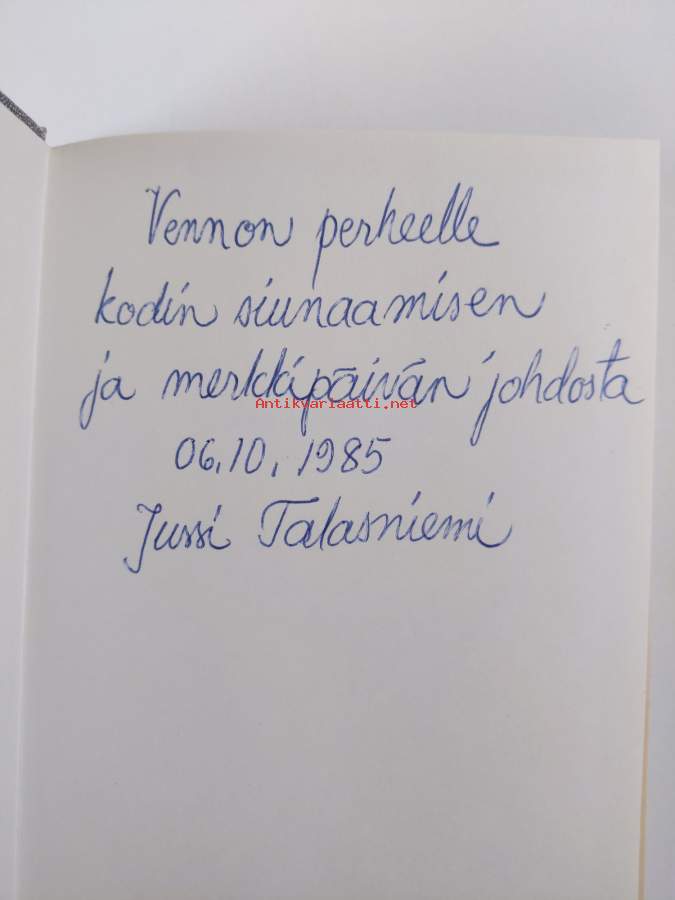 Vennon perheelle
kodin siunaamisen
ja merkkipäivän johdosta
Antikvariaatti.net
06.10.1985
Jussi Talasniemi